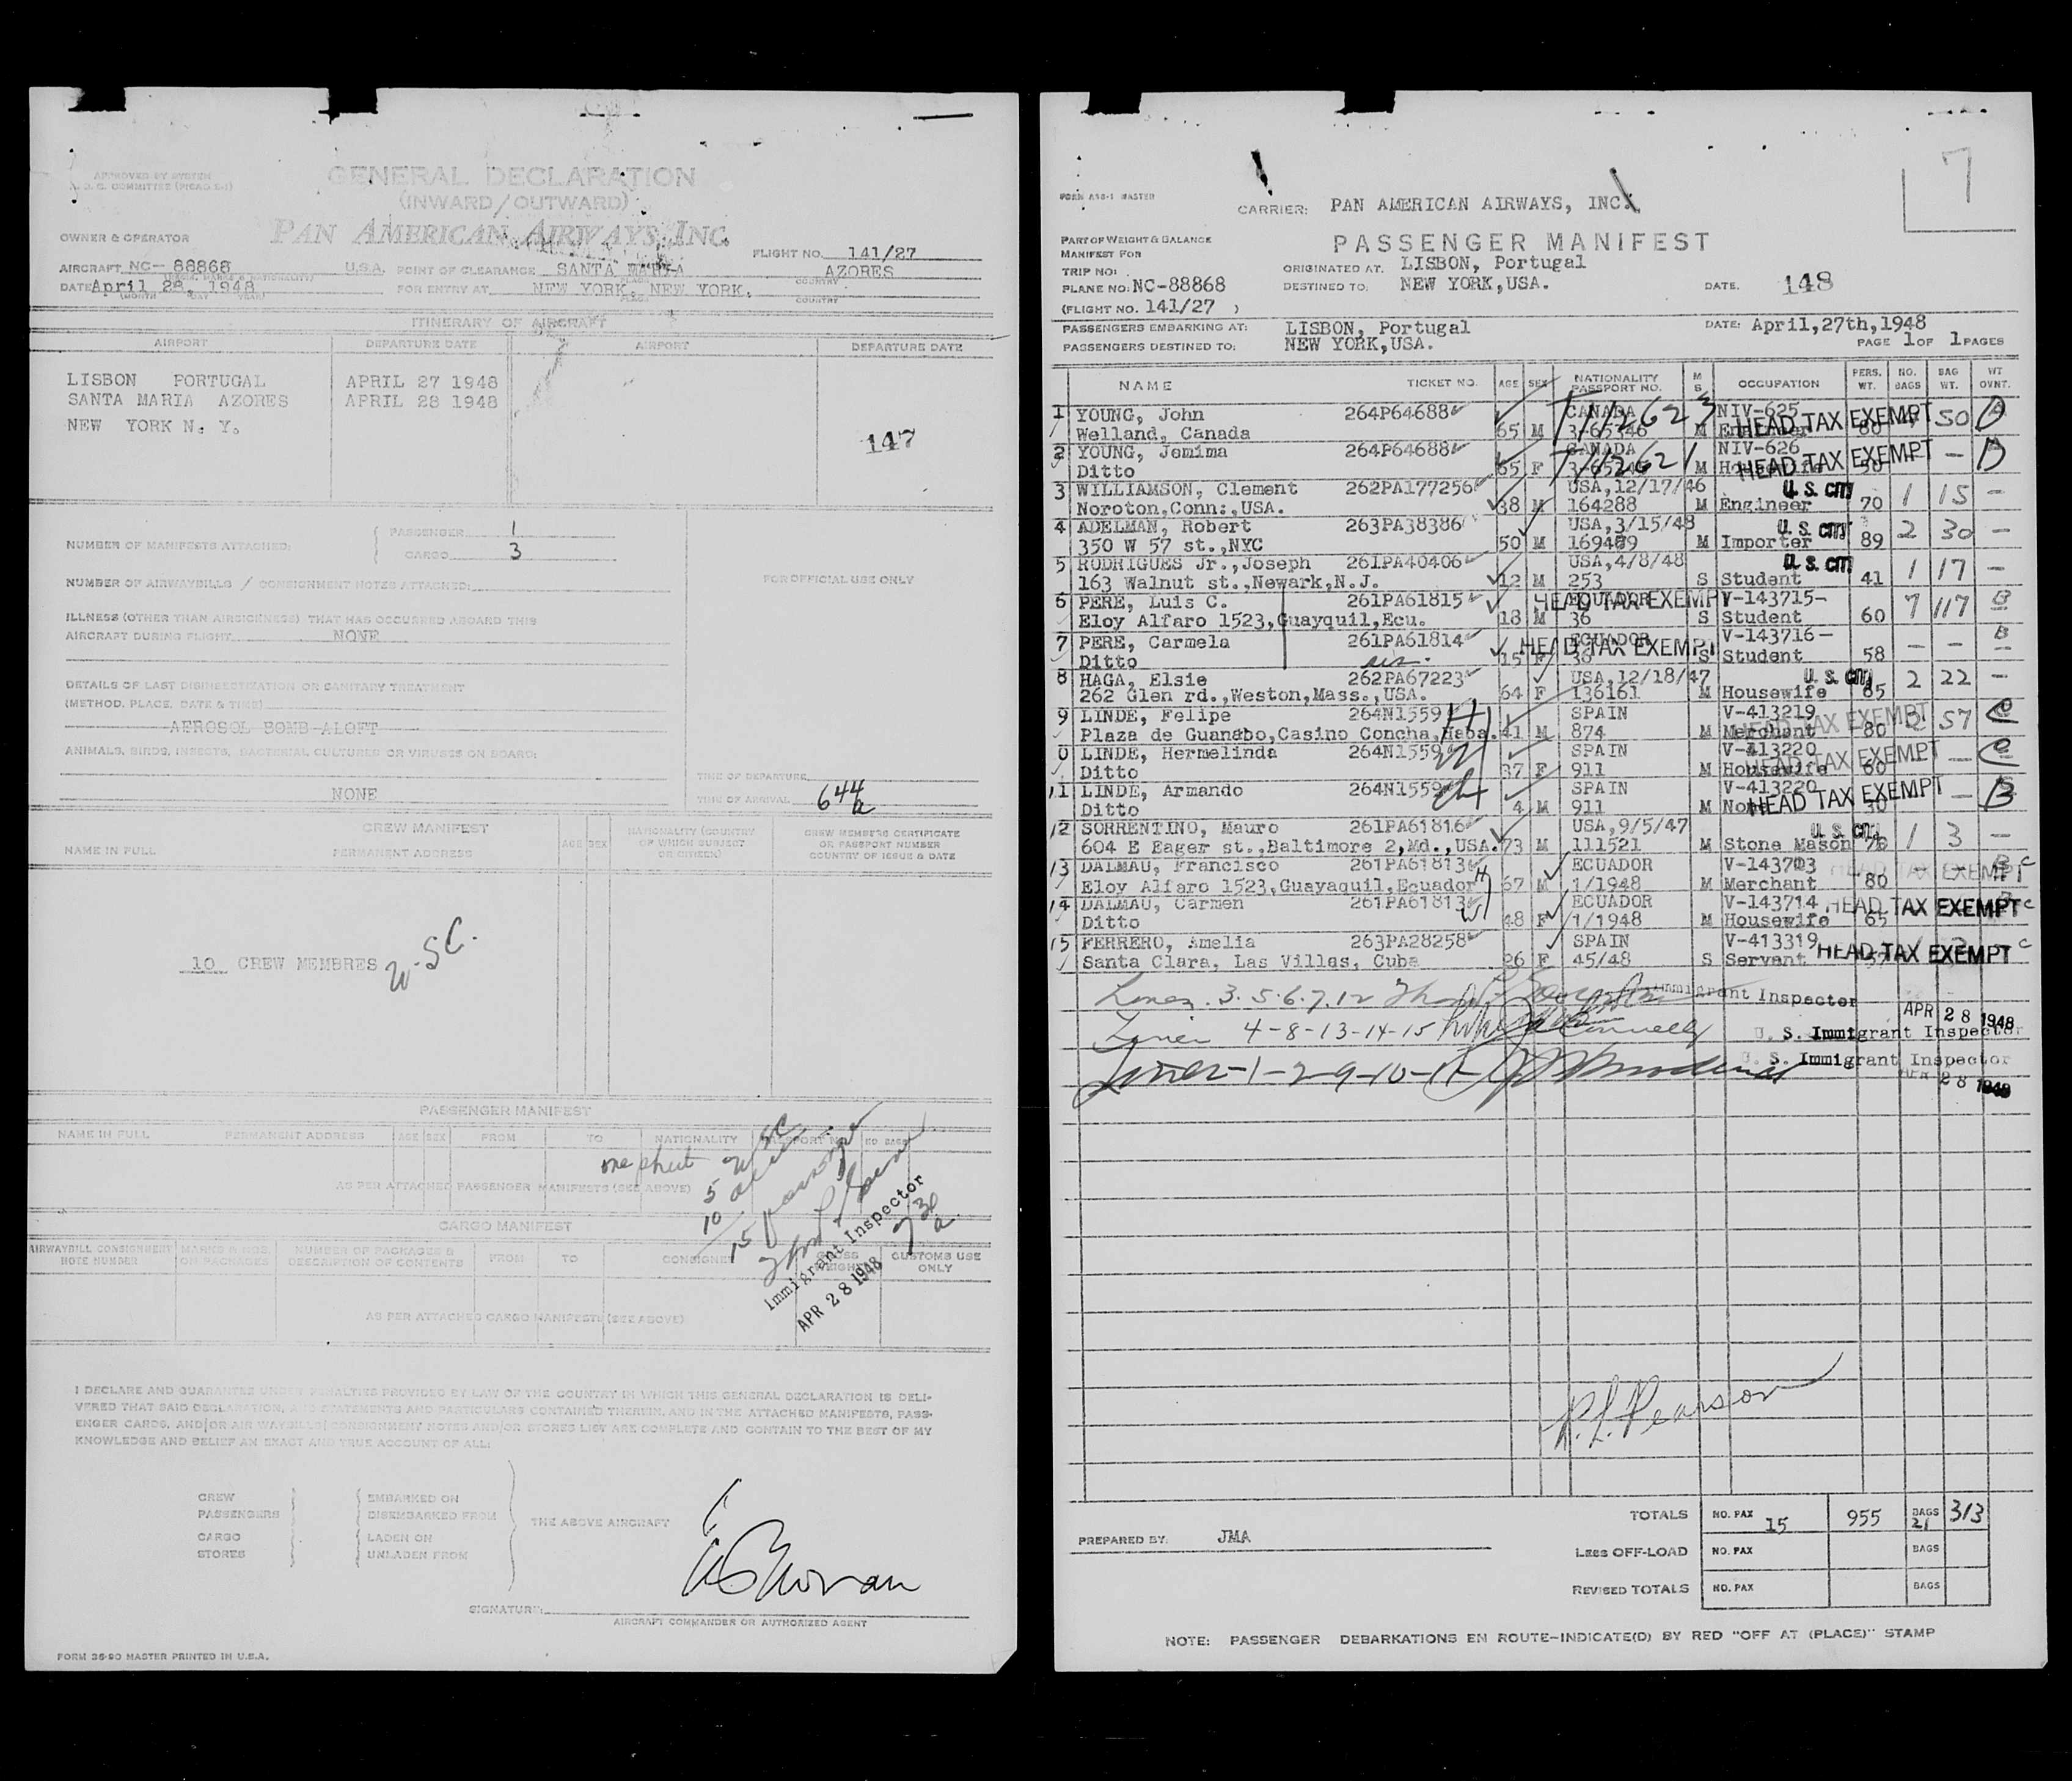 APPROVED BY BYSTEM
GENERAL DECLARATION
(INWARD/OUTWARD)
PAN AMERICAN AIRWAYS, INC.
OWNER & OPERATOR
FLIGHT NO. 141/27
AIRCRAFT NC- 88868 U.S.A. POINT OF CLEARANCE SANTA MARIA AZORES
DATE April 28, 1948 FOR ENTRY AT NEW YORK, NEW YORK.
(MONTH DAY YEAR) PLACE COUNTRY
ITINERARY OF AIRCRAFT
AIRPORT DEPARTURE DATE AIRPORT DEPARTURE DATE
LISBON PORTUGAL APRIL 27 1948
SANTA MARIA AZORES APRIL 28 1948
NEW YORK N. Y.
147
NUMBER OF MANIFESTS ATTACHED:
PASSENGER 1
CARGO 3
NUMBER OF AIRWAYBILLS / CONSIGNMENT NOTES ATTACHED:
FOR OFFICIAL USE ONLY
ILLNESS (OTHER THAN AIRSICKNESS) THAT HAS OCCURRED ABOARD THIS
AIRCRAFT DURING FLIGHT NONE
DETAILS OF LAST DISINSECTIZATION OR SANITARY TREATMENT
(METHOD, PLACE, DATE & TIME)
AEROSOL BOMB ALOFT
ANIMALS, BIRDS, INSECTS, BACTERIAL CULTURES OR VIRUSES ON BOARD:
NONE
TIME OF DEPARTURE
TIME OF ARRIVAL 644 a
CREW MANIFEST
NAME IN FULL PERMANENT ADDRESS AGE SEX NATIONALITY (COUNTRY OF WHICH SUBJECT OR CITIZEN) CREW MEMBERS CERTIFICATE OR PASSPORT NUMBER COUNTRY OF ISSUE & DATE
10 CREW MEMBRES
PASSENGER MANIFEST
NAME IN FULL PERMANENT ADDRESS AGE SEX FROM TO NATIONALITY PASSPORT NO. NO BAGS
one sheet
AS PER ATTACHED PASSENGER MANIFESTS (SEE ABOVE)
5
10
15 passenger
Immigrant Inspector
APR 28 1948
730 a.
CARGO MANIFEST
AIRWAYBILL CONSIGNMENT NOTE NUMBER MARKS & NOS ON PACKAGES NUMBER OF PACKAGES & DESCRIPTION OF CONTENTS FROM TO CONSIGNEE GROSS WEIGHT CUSTOMS USE ONLY
AS PER ATTACHED CARGO MANIFESTS (SEE ABOVE)
I DECLARE AND GUARANTEE UNDER PENALTIES PROVIDED BY LAW OF THE COUNTRY IN WHICH THIS GENERAL DECLARATION IS DELI-
VERED THAT SAID DECLARATION, AND STATEMENTS AND PARTICULARS CONTAINED THEREIN, AND IN THE ATTACHED MANIFESTS, PASS-
ENGER CARDS, AND/OR AIR WAYBILLS/CONSIGNMENT NOTES AND/OR STORES LIST ARE COMPLETE AND CONTAIN TO THE BEST OF MY
KNOWLEDGE AND BELIEF AN EXACT AND TRUE ACCOUNT OF ALL:
CREW EMBARKED ON
PASSENGERS DISEMBARKED FROM
THE ABOVE AIRCRAFT
CARGO LADEN ON
STORES UNLADEN FROM
SIGNATURE:
AIRCRAFT COMMANDER OR AUTHORIZED AGENT
FORM 36-90 MASTER PRINTED IN U.S.A.
7
FORM A50-1 MASTER
CARRIER: PAN AMERICAN AIRWAYS, INC.
PART OF WEIGHT & BALANCE
MANIFEST FOR
PASSENGER MANIFEST
TRIP NO:
ORIGINATED AT. LISBON, Portugal
PLANE NO: NC-88868 DESTINED TO: NEW YORK,USA. DATE. 148
(FLIGHT NO. 141/27 )
PASSENGERS EMBARKING AT: LISBON, Portugal DATE: April,27th,1948
PASSENGERS DESTINED TO: NEW YORK,USA. PAGE 1 OF 1 PAGES
NAME TICKET NO. AGE SEX NATIONALITY PASSPORT NO. M S OCCUPATION PERS. WT. NO. BAGS BAG WT. WT OVNT.
1 YOUNG, John 264P64688 CANADA NIV-625 HEAD TAX EXEMPT 50
Welland, Canada 65 M M Engineer
2 YOUNG, Jemima 264P64688 CANADA NIV-626 HEAD TAX EXEMPT -
Ditto 65 F M
3 WILLIAMSON, Clement 262PA177256 USA,12/17/46 U. S. CITZ 1 15 -
Noroton,Conn:,USA. 38 M 164288 M Engineer 70
4 ADELMAN, Robert 263PA38386 USA,3/15/48 U. S. CITZ 2 30 -
350 W 57 st.,NYC 50 M 169489 M Importer 89
5 RODRIGUES Jr.,Joseph 261PA40406 USA,4/8/48 U. S. CITZ 1 17 -
163 Walnut st.,Newark,N.J. 12 M 253 S Student 41
6 PERE, Luis C. 261PA61815 ECUADOR HEAD TAX EXEMPT V-143715- 7 117
Eloy Alfaro 1523,Guayquil,Ecu. 18 M 36 S Student 60
7 PERE, Carmela 261PA61814 ECUADOR HEAD TAX EXEMPT V-143716- - -
Ditto 15 F 36 S Student 58
8 HAGA, Elsie 262PA67223 USA,12/18/47 U. S. CITZ 2 22 -
262 Glen rd.,Weston,Mass.,USA. 64 F 136161 M Housewife 65
9 LINDE, Felipe 264N1559 SPAIN V-413219 HEAD TAX EXEMPT 2 57
Plaza de Guanabo,Casino Concha,Haba. 41 M 874 M Merchant 80
0 LINDE, Hermelinda 264N1559 SPAIN V-413220 HEAD TAX EXEMPT -
Ditto 37 F 911 M Housewife 60
11 LINDE, Armando 264N1559 SPAIN V-413220 HEAD TAX EXEMPT - B
Ditto 4 M 911 M None 30
12 SORRENTINO, Mauro 261PA61816 USA,9/5/47 U. S. CITZ 1 3 -
604 E Eager st.,Baltimore 2,Md.,USA. 73 M 111521 M Stone Mason
13 DALMAU, Francisco 261PA61813 ECUADOR V-143703 HEAD TAX EXEMPT
Eloy Alfaro 1523,Guayaquil,Ecuador 67 M 1/1948 M Merchant 80
14 DALMAU, Carmen 261PA61813 ECUADOR V-143714 HEAD TAX EXEMPT
Ditto 48 F 1/1948 M Housewife 65
15 FERRERO, Amelia 263PA28258 SPAIN V-413319 HEAD TAX EXEMPT
Santa Clara, Las Villas, Cuba 26 F 45/48 S Servant
Lines. 3. 5. 6. 7. 12 Immigrant Inspector
APR 28 1948
Lines 4-8-13-14-15 U. S. Immigrant Inspector
Lines-1-2-9-10-11- U. S. Immigrant Inspector
APR 28 1948
R.L. Pearson
TOTALS NO. PAX 15 955 BAGS 21 313
PREPARED BY: JMA
LESS OFF-LOAD NO. PAX BAGS
REVISED TOTALS NO. PAX BAGS
NOTE: PASSENGER DEBARKATIONS EN ROUTE-INDICATE(D) BY RED "OFF AT (PLACE)" STAMP